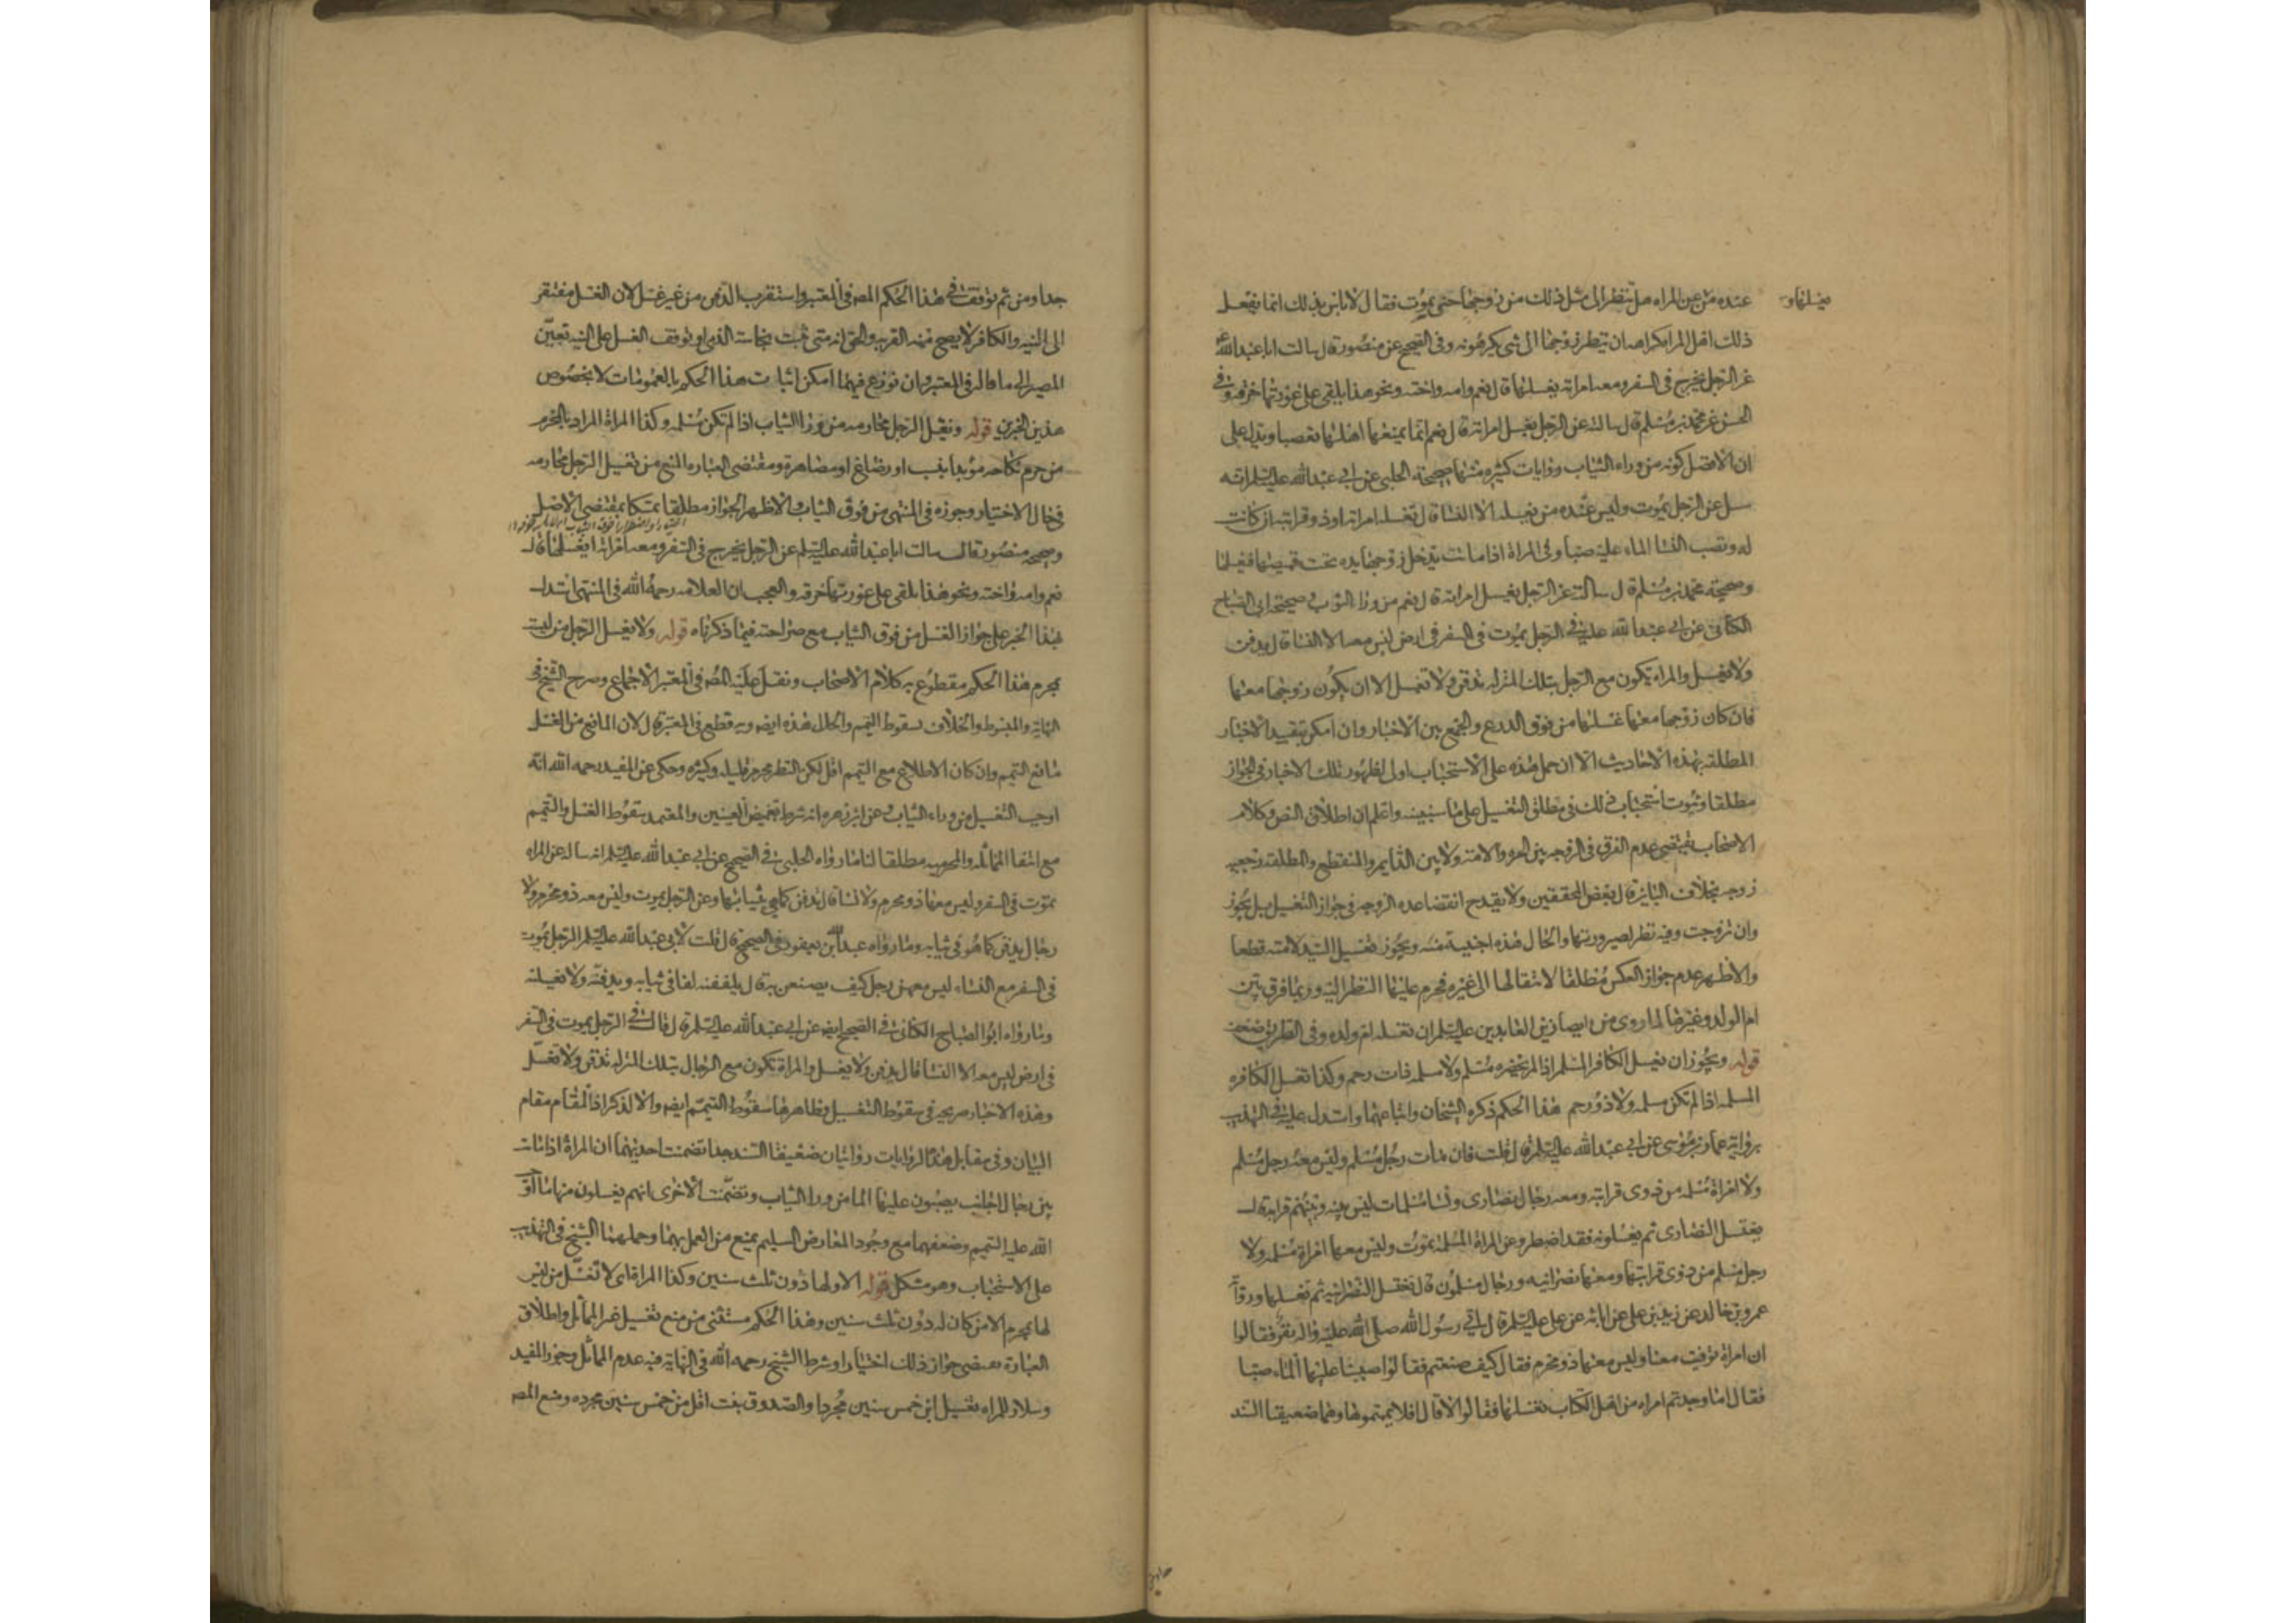 يغسلها و
عنده من عن المراه هل تنظر الى مثل ذلك من زوجها حتى يموت فقال لا باس بذلك انما يفعل
ذلك اهل المراه كراهه ان ينظر زوجها الى شى يكرهونه وفى الصحيح عن منصور قال سالت ابا عبد الله ع
عن الرجل يخرج فى السفر ومعه امراته يغسلها قال نعم وامه واخته ونحو هذا يلقى على عورتها خرقه وفى
الحسن عن محمد بن مسلم قال سالته عن الرجل يغسل امراته قال نعم انما يمنعها اهلها تعصبا ويدل على
ان الافضل كونه من وراء الثياب روايات كثيره منها صحيحة الحلبى عن ابى عبد الله عليه السلم انه
سئل عن الرجل يموت وليس عنده من يغسله الا النسا قال تغسله امراته او ذو قرابته ان كانت
له وتصب النسا الماء عليه صبا وفى المراة اذا ماتت يدخل زوجها يده تحت قميصها فيغسلها
وصحيحة محمد بن مسلم قال سالته عن الرجل يغسل امراته قال نعم من ورا الثوب وصحيحة ابى الصباح
الكنانى عن ابى عبد الله عليه فى الرجل يموت فى السفر فى ارض ليس معه الا النسا قال يدفن
ولا يغسل والمراه تكون مع الرجل بتلك المنزله تدفن ولا تغسل الا ان يكون زوجها معها
فان كان زوجها معها غسلها من فوق الدرع والجمع بين الاخبار وان امكن بتقييد الاخبار
المطلقه بهذه الاحاديث الا ان حمل هذه على الاستحباب اولى لظهور تلك الاخبار فى الجواز
مطلقا وثبوت استحباب ذلك فى مطلق التغسيل على ما سنبينه واعلم ان اطلاق النص وكلام
الاصحاب يقتضى عدم الفرق فى الزوجه بين الحره والامة ولا بين الدايم والمنقطع والمطلقه رجعيه
زوجه بخلاف البائن قال بعض المحققين ولا يقدح انقضا عده الزوجه فى جواز التغسيل بل يجوز
وان تزوجت وفيه نظر لصيرورتها والحال هذه اجنبية منه ويجوز تغسيل السيد لامته قطعا
والاظهر عدم جواز العكس مطلقا لانتقالها الى غيره فحرم عليها النظر اليه وربما فرق بين
ام الولد وغيرها لما روى من ايصا زين العابدين عليه السلم ان تغسله ام ولده وفى الطريق ضعف
قوله ويجوز ان يغسل الكافر المسلم اذا لم يحضره مسلم ولا مسلمه ذات رحم وكذا تغسل الكافره
المسلمه اذا لم تكن مسلمه ولا ذو رحم هذا الحكم ذكره الشيخان واتباعهما واستدل عليه فى التهذيب
برواية عمار بن موسى عن ابى عبد الله عليه السلم قال قلت فان مات رجل مسلم وليس معه رجل مسلم
ولا امراة مسلمه من ذوى قرابته ومعه رجال نصارى ونسا مسلمات ليس بينه وبينهم قرابة قال
يغتسل النصارى ثم يغسلونه فقد اضطر وعن المراة المسلمة تموت وليس معها امراة مسلمه ولا
رجل مسلم من ذوى قرابتها ومعها نصرانيه ورجال مسلمون قال تغتسل النصرانيه ثم تغسلها وروآ
عمرو بن خالد عن زيد بن على عن ابائه عن على عليه السلم قال اتى رسول الله صلى الله عليه واله نفر فقالوا
ان امراة توفيت معنا وليس معها ذو محرم فقال كيف صنعتم فقالوا صببنا عليها الماء صبا
فقال اما وجدتم امراه من اهل الكتاب تغسلها فقالوا لا قال افلا يممتموها وهما ضعيفا السند
جدا ومن ثم توقف فى هذا الحكم المصه فى المعتبر واستقرب الدفن من غير غسل لان الغسل مفتقر
الى النيه والكافر لا يصح منه القربه والحق انه متى ثبت نجاسة الذمى او توقف الغسل على النيه تعين
المصير الى ما قاله فى المعتبر وان نوزع فيهما امكن اثبات هذا الحكم بالعمومات لا بخصوص
هذين الخبرين قوله ويغسل الرجل محارمه من ورا الثياب اذا لم تكن مسلمه وكذا المراة المراد بالمحرم
من حرم نكاحه مؤبدا بنسب او رضاع او مصاهرة ومقتضى العباره المنع من تغسيل الرجل محارمه
فى حال الاختيار وجوزه فى المنتهى من فوق الثياب والاظهر الجواز مطلقا تمسكا بمقتضى الاصل
وصحيحه منصور قال سالت ابا عبد الله عليه السلم عن الرجل يخرج فى السفر ومعه امراته ايغسلها قال
نعم وامه واخته ونحو هذا يلقى على عورتها خرقه والعجب ان العلامه رحمه الله فى المنتهى استدل
بهذا الخبر على جواز الغسل من فوق الثياب مع صراحته فيما ذكرناه قوله ولا يغسل الرجل من ليست
بمحرم هذا الحكم مقطوع به فى كلام الاصحاب ونقل عليه المصه فى المعتبر الاجماع وصرح الشيخ فى
النهاية والمبسوط والخلاف بسقوط التيمم والحال هذه ايضه وبه قطع فى المعتبر قال لان المانع من الغسل
مانع التيمم وان كان الاطلاع مع التيمم اقل لكن النظر محرم قليله وكثيره وحكى عن المفيد رحمه الله انه
اوجب التغسيل من وراء الثياب وعن ابن زهره انه شرط تغميض العينين والمعتمد سقوط الغسل والتيمم
مع انتفا المماثله والمحرميه مطلقا لنا ما رواه الحلبى فى الصحيح عن ابى عبد الله عليه السلم انه ساله عن المراه
تموت فى السفر وليس معها ذو محرم ولا نسا قال تدفن كما هى بثيابها وعن الرجل يموت وليس معه ذو محرم ولا
رجال يدفن كما هو فى ثيابه وما رواه عبد الله بن يعفور فى الصحيح قال قلت لابى عبد الله عليه السلم الرجل يموت
فى السفر مع النساء ليس معهن رجل كيف يصنعن به قال يلففنه لفا فى ثيابه ويدفنه ولا يغسلنه
وما رواه ابو الصباح الكنانى فى الصحيح ايضه عن ابى عبد الله عليه السلم قال قال فى الرجل يموت فى السفر
فى ارض ليس معه الا النسا قال يدفن ولا يغسل والمراة تكون مع الرجال بتلك المنزله تدفن ولا تغسل
وهذه الاخبار صريحه فى سقوط التغسيل وظاهرها سقوط التيمم ايضه والا لذكر اذ المقام مقام
البيان وفى مقابل هذه الروايات روايتان ضعيفتا السند جدا تضمنت احديهما ان المراة اذا ماتت
بين رجال اجانب يصبون عليها الما من ورا الثياب وتضمنت الاخرى انهم يغسلون منها ما اوجب
الله عليه التيمم وضعفهما مع وجود المعارض السليم يمنع من العمل بهما وحملهما الشيخ فى التهذيب
على الاستحباب وهو مشكل قوله الا ولها دون ثلث سنين وكذا المراة اى لا تغسل من ليس
لها بمحرم الا من كان له دون ثلث سنين وهذا الحكم مستثنى من منع تغسيل غير المماثل واطلاق
العبارة يقتضى جواز ذلك اختيارا وشرط الشيخ رحمه الله فى النهاية فيه عدم المماثل وجوز المفيد
وسلار للمراه تغسيل ابن خمس سنين مجردا والصدوق بنت اقل من خمس سنين مجرده ومنع المصه